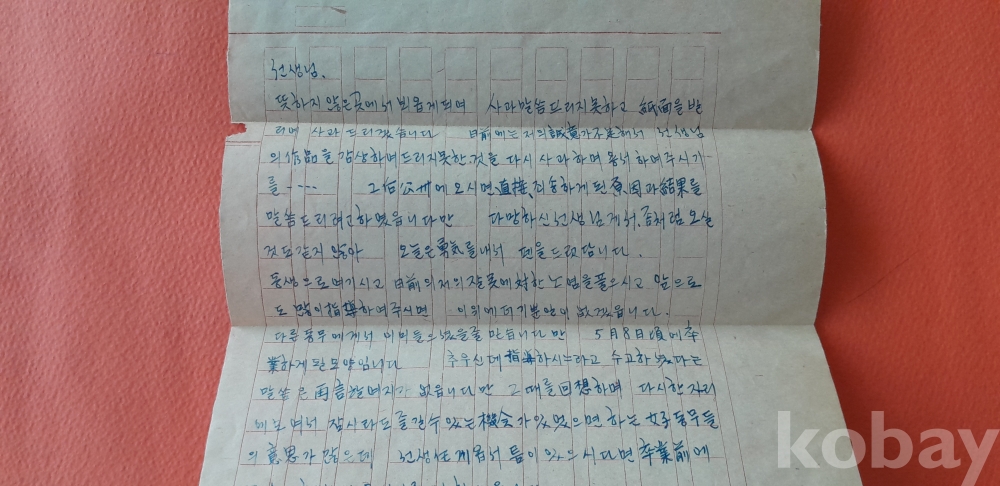 선생님.
뜻하지 않은 곳에서 뵈옵게 되며 사과말씀드리지 못하고 紙面을 빌
리며 사과드리겠습니다 日前에는 저의 誠意가 不足해서 선생님
의 作品을 감상하며 드리지 못한 것을 다시 사과하며 용서하여 주시기
를---- 그 后 에 오시면 直接, 하게 된 原因과 結果를
말씀드리려고 하였습니다만 다망하신 선생님께서 좀처럼 오실
것도 같지 않아 오늘은 勇氣를 내서 펜을 드렸답니다.
동생으로 여기시고 日前의 저의 잘못에 対한 노염을 풀으시고 앞으로
도 많이 指導하여 주시면 이 위에 더 기쁨 없겠습니다.
다른 동무에게서 이미 들으셨을줄 믿습니다만 5月8日頃에 卒
業하게 된 모양입니다 추우신데 指導하시느라고 수고하셨다는
말씀은 再言할 여지가 없읍니다만 그때를 回想하며 다시 한 자리
에 모여서 잠시라도 즐길 수 있는 機会가 있었으면 하는 女子동무들
의 意思가 많은데 선생任께옵서 틈이 있으시다면 卒業前에
kobay